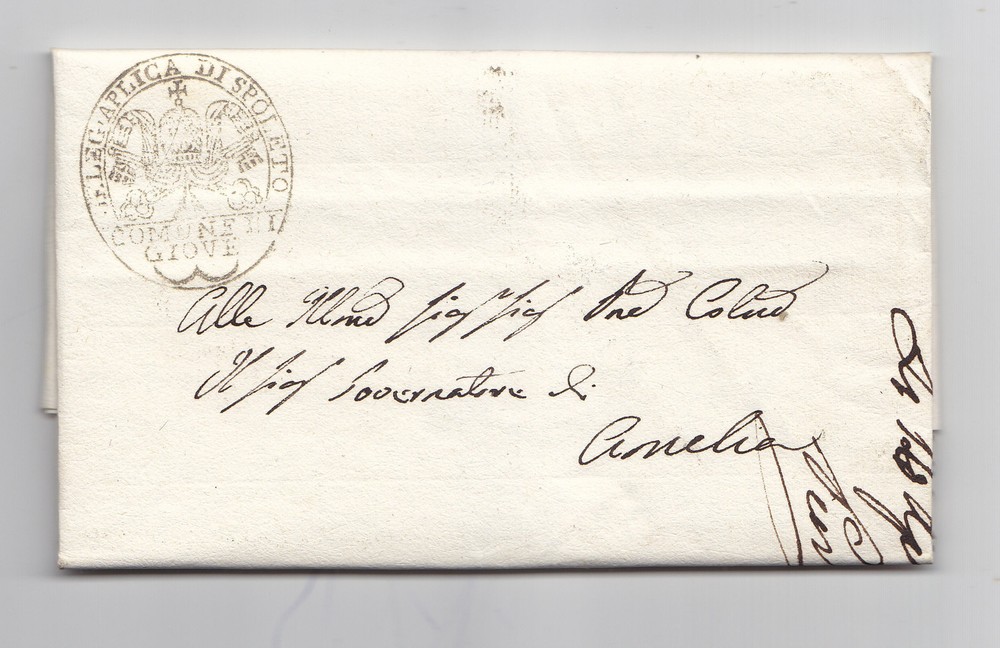 DELEG. APLICA DI SPOLETO
COMUNE DI
GIOVE
Alle Illmo Sig Sig Pne Colmo
Il Sig Governatore di
Amelia